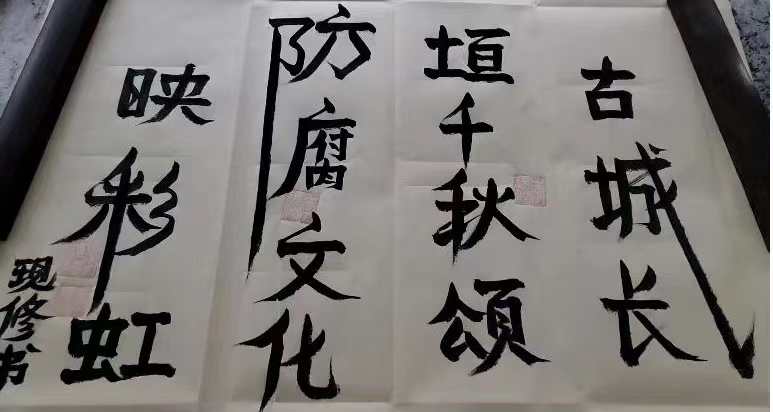 古城长
垣千秋颂
防腐文化
映彩虹
现修书